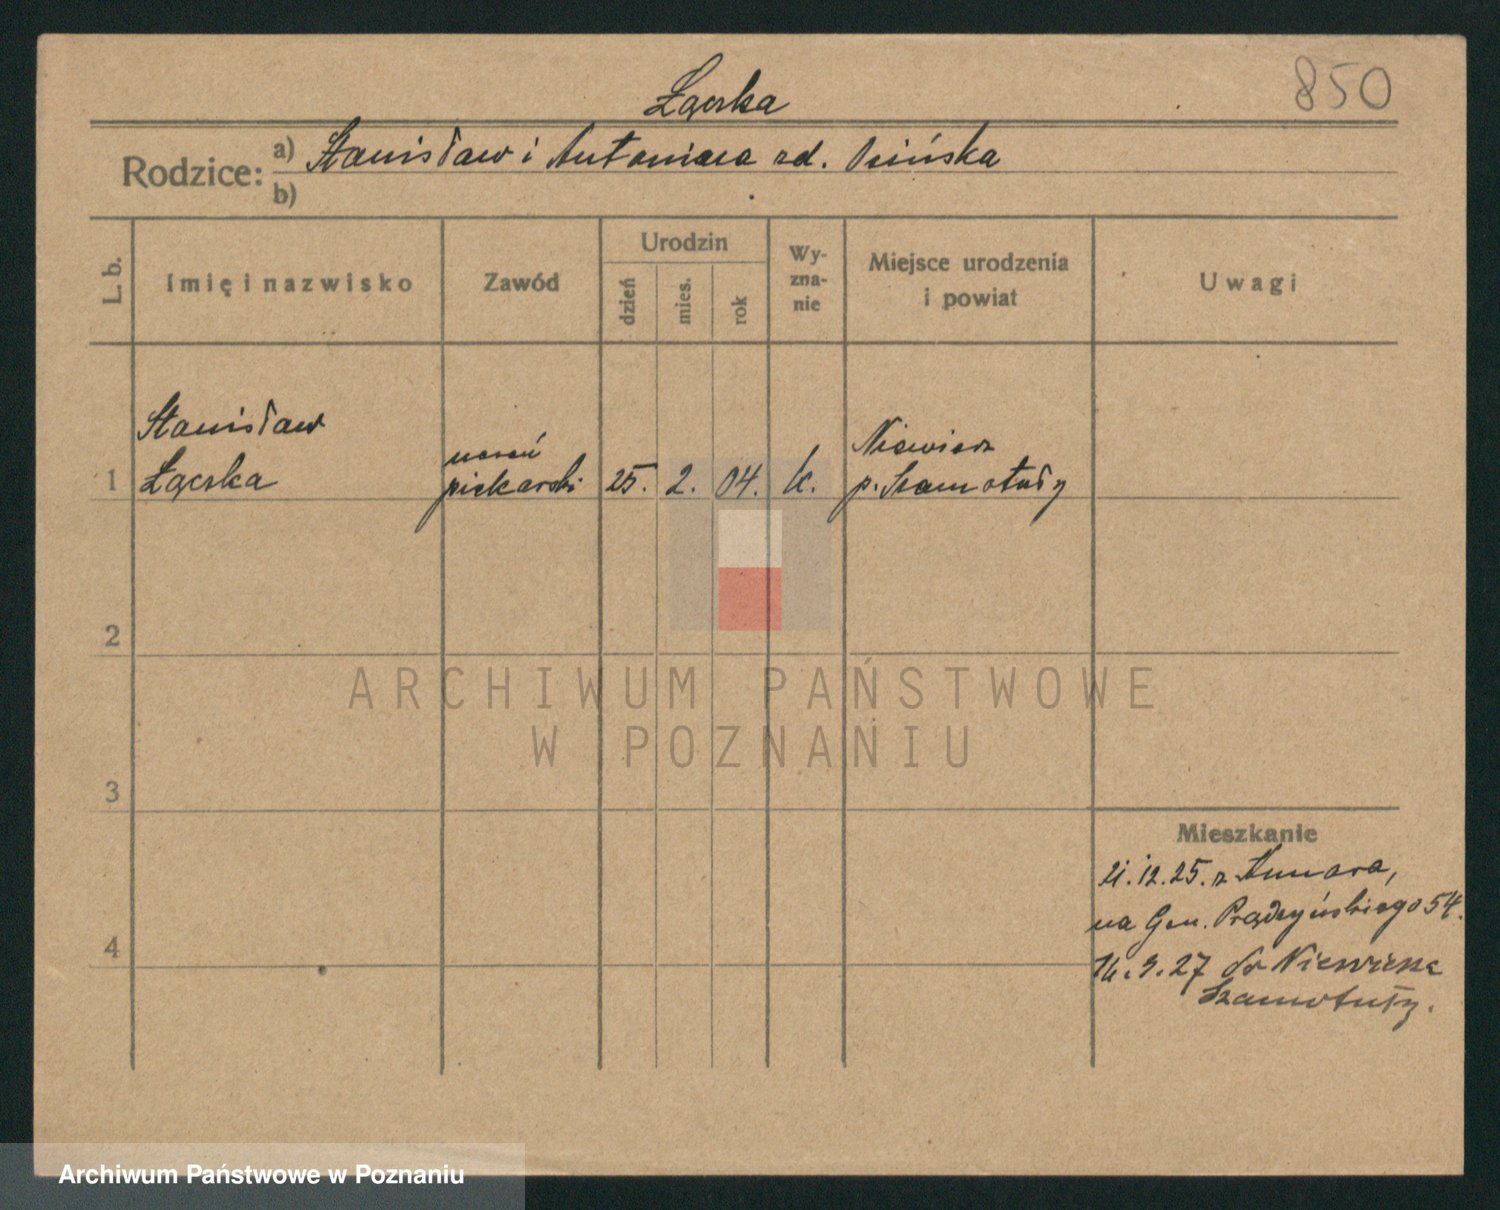 850
Łączka
Rodzice: a) Stanisław i Antonina zd. Osińska
b)
L. b.
Imię i nazwisko
Zawód
Urodzin
dzień
mies.
rok
Wy-
zna-
nie
Miejsce urodzenia
i powiat
Uwagi
Stanisław
1 Łączka
uczeń
piekarski
25. 2. 04. k.
Niewierz
p. Szamotuły
2
ARCHIWUM PAŃSTWOWE
W POZNANIU
3
Mieszkanie
21.12.25. z
na Gen. Prądzyńskiego 54.
4
9.27 do Niewierz
Szamotuły.
Archiwum Państwowe w Poznaniu